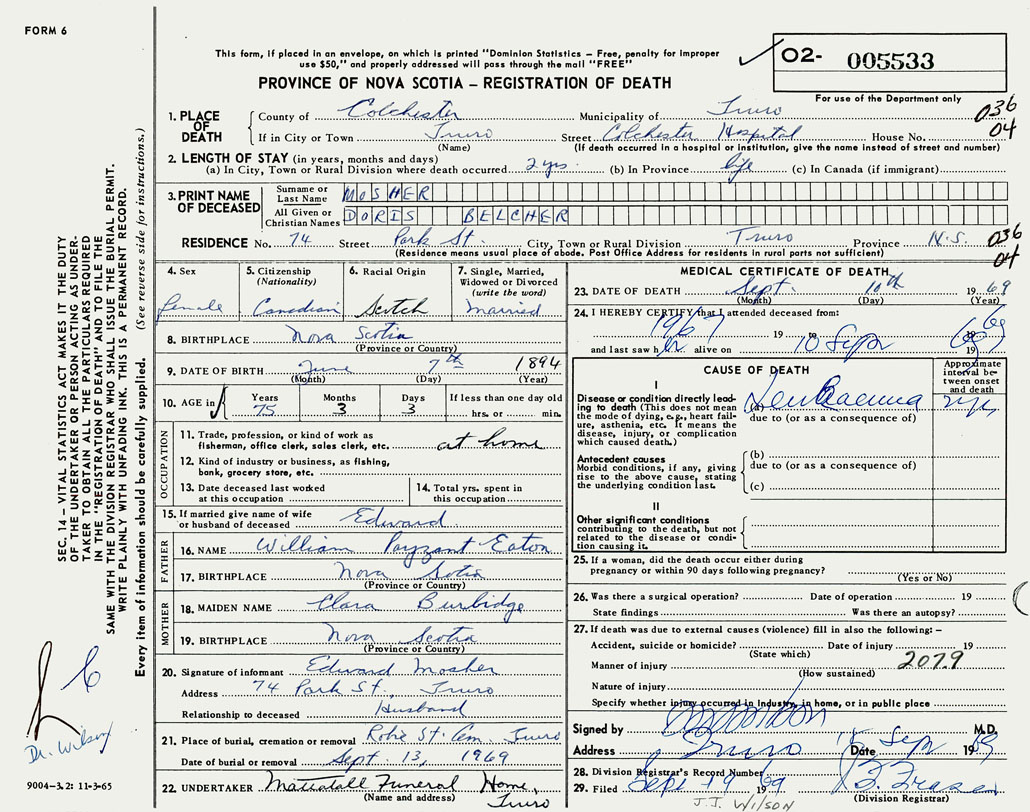 FORM 6
This form, if placed in an envelope, on which is printed "Dominion Statistics – Free, penalty for improper
use $50," and properly addressed will pass through the mail "FREE"
PROVINCE OF NOVA SCOTIA – REGISTRATION OF DEATH
O2- 005533
For use of the Department only
1. PLACE OF DEATH
County of Colchester Municipality of Truro 036
If in City or Town Truro Street Colchester Hospital House No. 04
(Name) (If death occurred in a hospital or institution, give the name instead of street and number)
2. LENGTH OF STAY (in years, months and days)
(a) In City, Town or Rural Division where death occurred 2 yrs. (b) In Province life (c) In Canada (if immigrant)
3. PRINT NAME OF DECEASED
Surname or Last Name MOSHER
All Given or Christian Names DORIS BELCHER
RESIDENCE No. 74 Street Park St. City, Town or Rural Division Truro Province N.S. 036
(Residence means usual place of abode. Post Office Address for residents in rural parts not sufficient) 04
4. Sex
female
5. Citizenship
(Nationality)
Canadian
6. Racial Origin
Scotch
7. Single, Married,
Widowed or Divorced
(write the word)
Married
8. BIRTHPLACE Nova Scotia
(Province or Country)
9. DATE OF BIRTH June 7th 1894
(Month) (Day) (Year)
10. AGE in
Years Months Days If less than one day old
75 3 3 hrs. or min.
OCCUPATION
11. Trade, profession, or kind of work as
fisherman, office clerk, sales clerk, etc. at home
12. Kind of industry or business, as fishing,
bank, grocery store, etc.
13. Date deceased last worked
at this occupation
14. Total yrs. spent in
this occupation
15. If married give name of wife
or husband of deceased Edward
FATHER
16. NAME William Payzant Eaton
17. BIRTHPLACE Nova Scotia
(Province or Country)
MOTHER
18. MAIDEN NAME Clara Burbidge
19. BIRTHPLACE Nova Scotia
(Province or Country)
20. Signature of informant Edward Mosher
Address 74 Park St., Truro
Relationship to deceased Husband
21. Place of burial, cremation or removal Robie St. Cem. Truro
Date of burial or removal Sept. 13, 1969
22. UNDERTAKER Mattatall Funeral Home,
(Name and address) Truro
MEDICAL CERTIFICATE OF DEATH
23. DATE OF DEATH Sept. 10th 1969
(Month) (Day) (Year)
24. I HEREBY CERTIFY that I attended deceased from:
1967 19 to 19 69
and last saw her alive on 10 Sept 19 69
CAUSE OF DEATH
Approximate
interval be-
tween onset
and death
I
Disease or condition directly lead-
ing to death (This does not mean
the mode of dying, e.g., heart fail-
ure, asthenia, etc. It means the
disease, injury, or complication
which caused death.)
(a) Leukaemia
due to (or as a consequence of)
Antecedent causes
Morbid conditions, if any, giving
rise to the above cause, stating
the underlying condition last.
(b)
due to (or as a consequence of)
(c)
II
Other significant conditions
contributing to the death, but not
related to the disease or condi-
tion causing it.
25. If a woman, did the death occur either during
pregnancy or within 90 days following pregnancy?
(Yes or No)
26. Was there a surgical operation? Date of operation 19
State findings Was there an autopsy?
27. If death was due to external causes (violence) fill in also the following: –
Accident, suicide or homicide? Date of injury 19
(State which)
Manner of injury 207.9
(How sustained)
Nature of injury
Specify whether injury occurred in industry, in home, or in public place
Signed by M.D.
Address Truro Date 15 Sep 1969
28. Division Registrar's Record Number
29. Filed Sept 19 1969 B. Fraser
(Division Registrar)
J.J. WILSON
SEC. 14 – VITAL STATISTICS ACT MAKES IT THE DUTY
OF THE UNDERTAKER OR PERSON ACTING AS UNDER-
TAKER TO OBTAIN ALL THE PARTICULARS REQUIRED
IN THE "REGISTRATION OF DEATH" AND TO FILE THE
SAME WITH THE DIVISION REGISTRAR WHO SHALL ISSUE THE BURIAL PERMIT.
WRITE PLAINLY WITH UNFADING INK. THIS IS A PERMANENT RECORD.
Every item of information should be carefully supplied. (See reverse side for instructions.)
Dr. Wilson
9004–3.2: 11-3-65